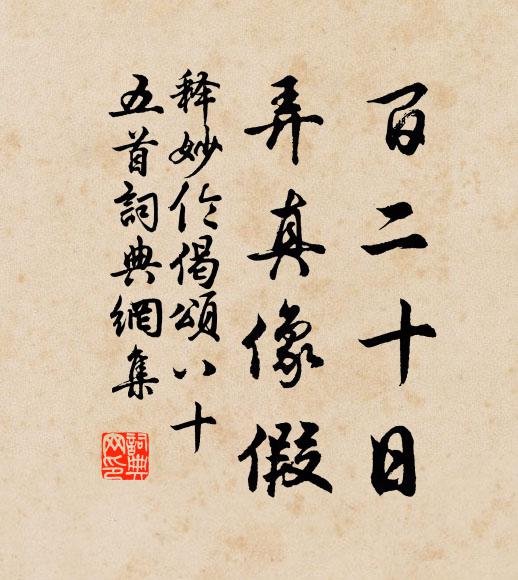 百二十日
弄真像假
释妙伦偈颂八十
五首詞典網集
詞典网印